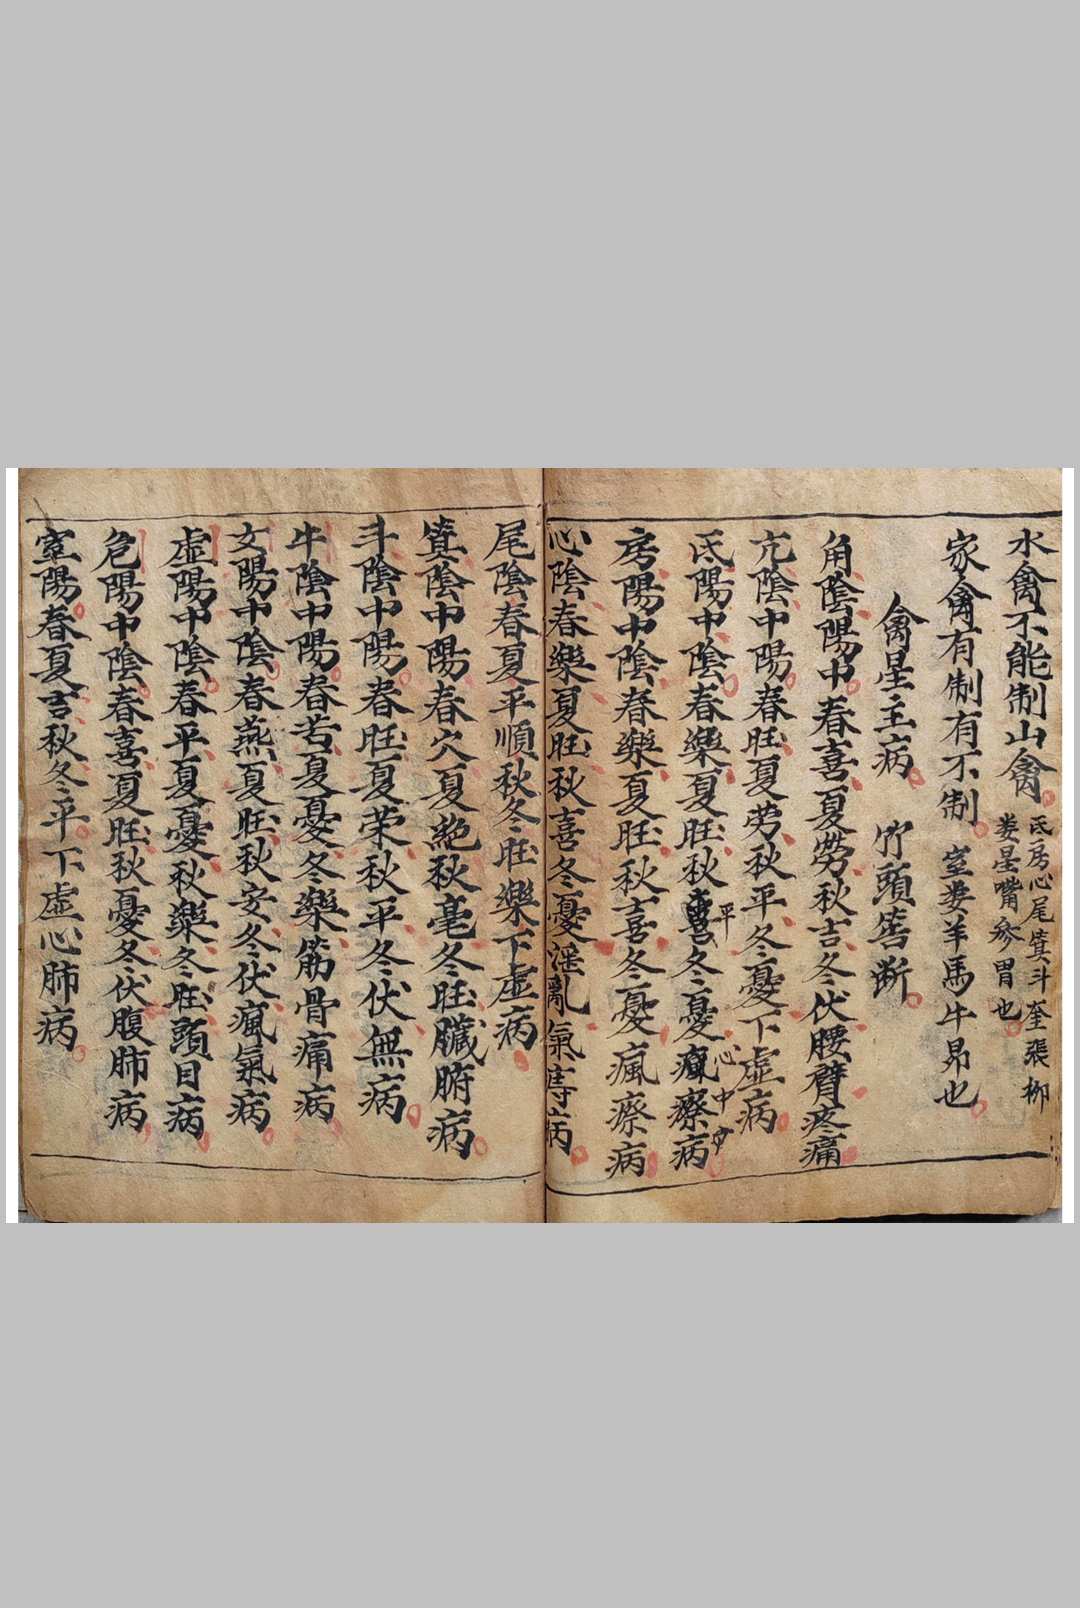 水禽不能制山禽 氐房心尾箕斗奎張柳
婁星嘴參胃也
家禽有制有不制 室婁羊馬牛昴也
禽星主病 竹頭筶斷
角陰陽中春喜夏勞秋吉冬伏腰臂疼痛
亢陰中陽春旺夏勞秋平冬憂下虛病
氐陽中陰春樂夏旺秋平冬憂心中病
房陽中陰春樂夏旺秋喜冬憂瘋瘵病
心陰春樂夏旺秋喜冬憂淫亂氣病
尾陰春夏平順秋冬旺樂下虛病
箕陰中陽春穴夏絕秋毫冬旺臟腑病
斗陰中陽春旺夏荣秋平冬伏無病
牛陰中陽春苦夏憂冬樂筋骨痛病
女陽中陰春燕夏旺秋安冬伏瘋氣病
虛陽中陰春平夏憂秋樂冬旺頭目病
危陽中陰春喜夏旺秋憂冬伏腹肺病
室陽春夏吉秋冬平下虛心肺病